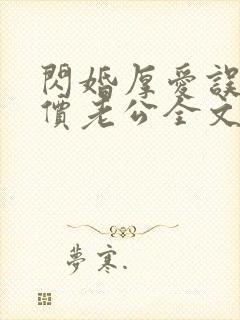 閃婚厚愛誤
價老公全文
夢寒.